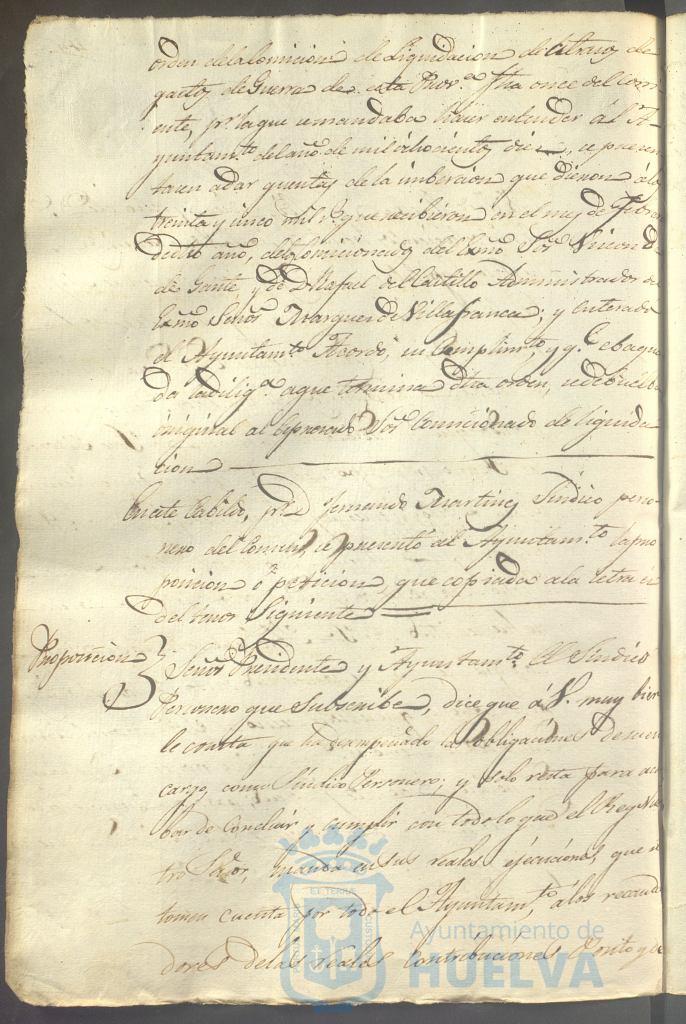 orden de la Comicion de Liquidacion de Atrasos de
gastos de Guerra de esta Prov.ª fha once del corri-
ente, pr. la que se mandaba hacer entender á el A-
yuntam.to del año de mil ochocientos diez, se presen
tasen a dar quentas de la imbercion que dieron á los
treinta y cinco mil r.s que recibieron en el mes de Febrero
de dicho año, de los Comicionados del Exmo Sor. Vizconde
de Gante, y de D. Rafael del Castillo Administrador del
Exmo Señor Marques de Villafranca; y enterado
el Ayuntam.to Acordó, su Cumplim.to, y q.e ebaqua
da la dilig.ª a que termina dha orden, se debuelba
original al expresado Sor. Comicionado de liquida
cion
En este Cabildo, pr. D. Fernando Martinez Sindico perso-
nero del Comun, se presentó al Ayuntam.to la pro
posicion ó peticion, que copiada a la letra es
del tenor Siguiente
Proposicion
Señor Presidente y Ayuntam.to El Sindico
Personero que Subscribe, dice que á V. muy bien
le consta que ha desempeñado las obligaciones de su en
cargo, como Sindico Personero; y solo resta para aca
bar de Concluir y cumplir con todo lo que el Rey Nues
tro Señor, manda en sus reales que se
tomen cuenta por todo el Ayuntam.to, á los recauda
dores de las reales Contribuciones Posito y de
Ayuntamiento de
HUELVA